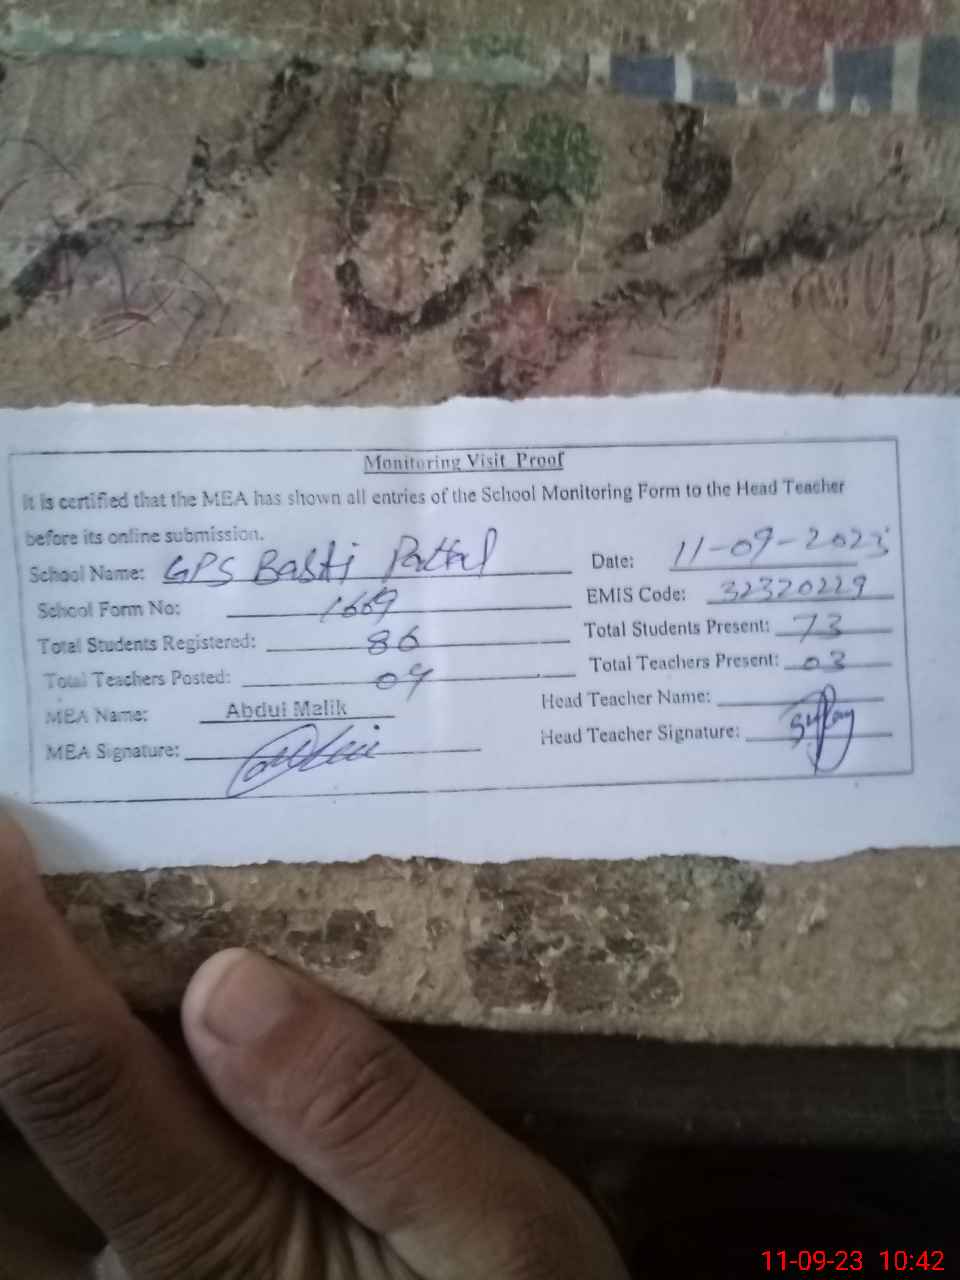 Monitoring Visit Proof
It is certified that the MEA has shown all entries of the School Monitoring Form to the Head Teacher
before its online submission.
School Name: GPS Basti Date: 11-09-2023
School Form No: 1669 EMIS Code: 32320229
Total Students Registered: 86 Total Students Present: 73
Total Teachers Posted: 04 Total Teachers Present: 03
MEA Name: Abdul Malik Head Teacher Name:
MEA Signature: Head Teacher Signature:
11-09-23 10:42